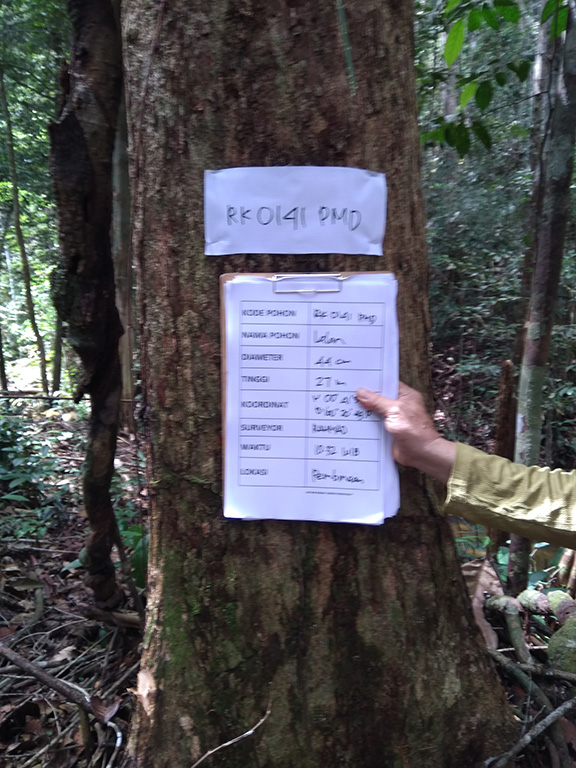 RK 0141 PMD
KODE POHON RK 0141 PMD
NAMA POHON
DIAMETER 44 cm
TINGGI 27 m
KOORDINAT
SURVEYOR RAHMAD
WAKTU 10:32 WIB
LOKASI